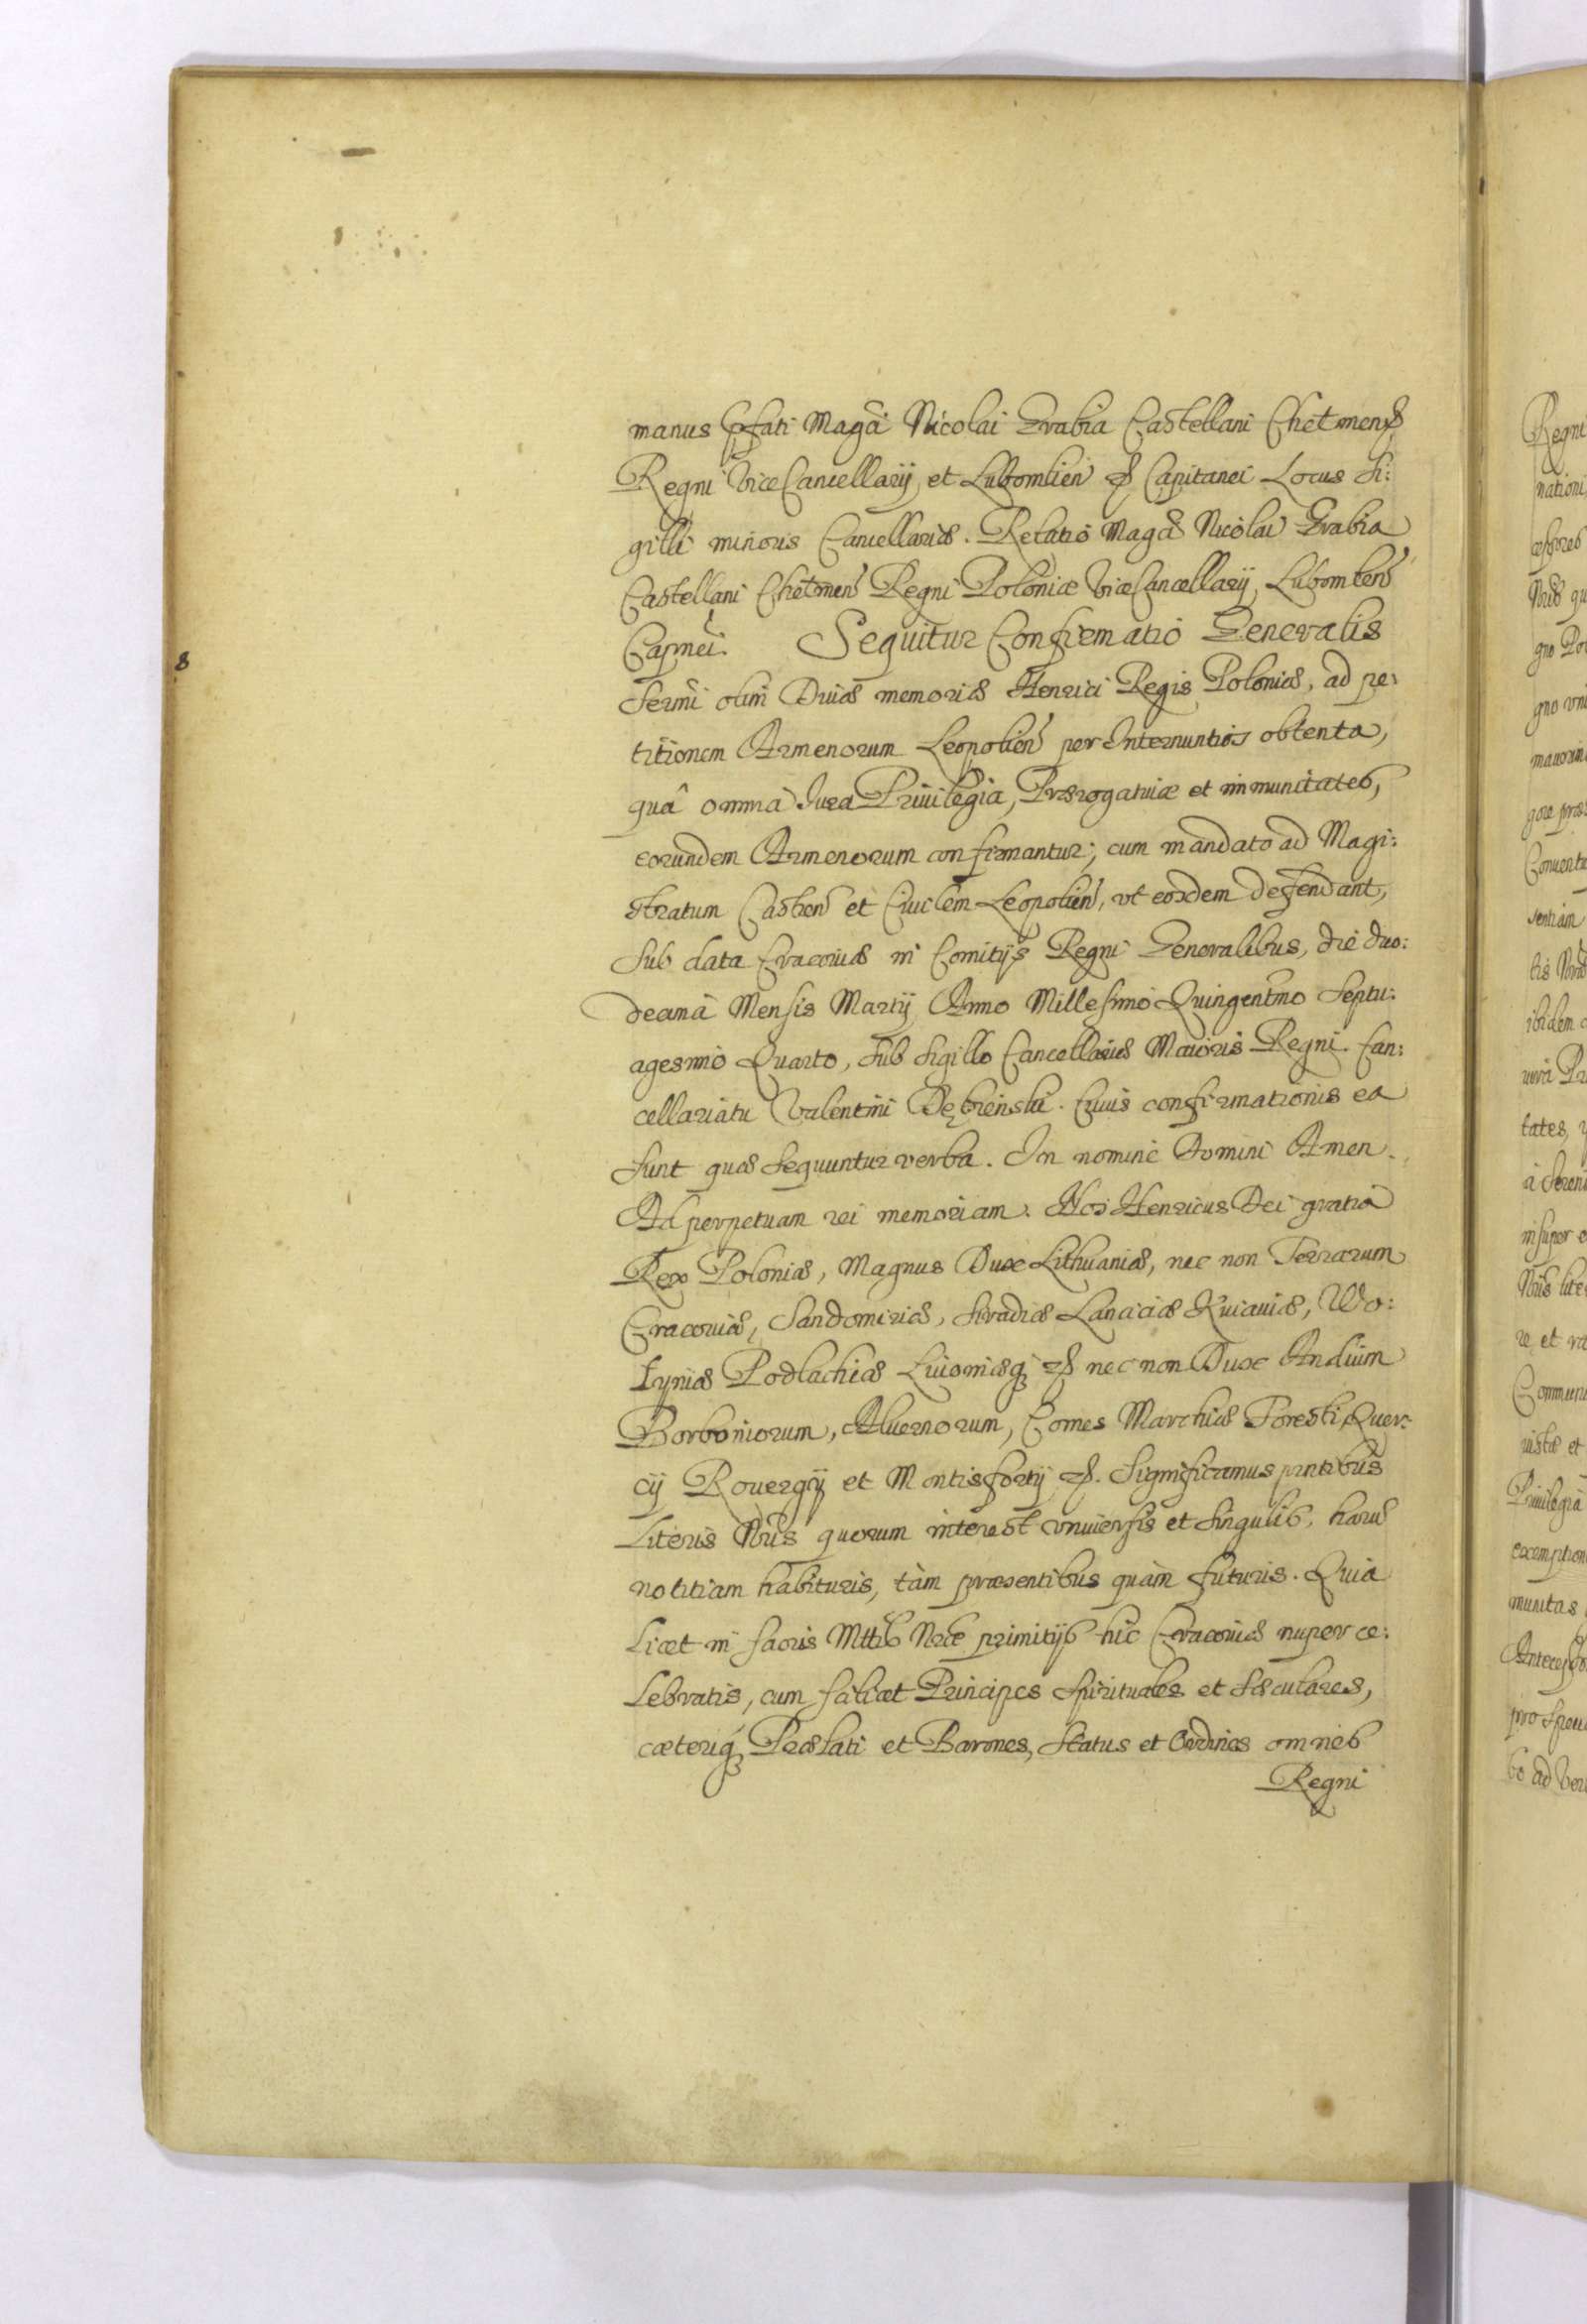 manus pfati Magci Nicolai Grabia Castellani Chełmens
Regni ViceCancellarij, et Lubomlien etc Capitanei Locus Si:
gilli minoris Cancellariæ. Relatio Magci Nicolai Grabia
Castellani Chełmen Regni Poloniæ ViceCancellarij, Lubomlens
Capnei. Sequitur Confirmatio Generalis
Sermi olim Divæ memoriæ Henrici Regis Poloniæ, ad pe:
titionem Armenorum Leopolien per Internuntios obtenta,
quâ omnia Jura Privilegia, Prærogativæ et immunitates,
eorundem Armenorum confirmantur, cum mandato ad Magi:
stratum Castren et Civilem Leopolien, vt eosdem defendant,
Sub data Cracoviæ in Comitijs Regni Generalibus, die duo:
decima Mensis Martij Anno Millesimo Quingentmo Septu:
agesimo Quarto, Sub Sigillo Cancellariæ Maioris Regni. Can:
cellariatu Valentini Dębienski. Cuius confirmationis ea
Sunt quæ Sequuntur verba. In nomine Domini Amen.
Ad perpetuam rei memoriam. Nos Henricus Dei gratia
Rex Poloniæ, Magnus Dux Lithuaniæ, nec non Terrarum
Cracoviæ, Sandomiriæ, Siradiæ Lanciciæ Kuiaviæ, Wo:
łyniæ Podlachiæ Livoniæq; etc nec non Dux Andium
Borboniorum, Alvernorum, Comes Marchiæ Foresti, Quer:
cij Rovergij et Montisfortij etc. Significamus pntibus
Literis Nris quorum interest vniversis et Singulis, harum
notitiam habituris, tàm præsentibus quàm futuris. Quia
Licet in sacris Mttis Nræ primitijs hic Cracoviæ nuper ce:
Lebratis, cum scilicet Principes Spirituales et Sæculares,
cæteriq; Prælati et Barones, Status et Ordines omnes
Regni